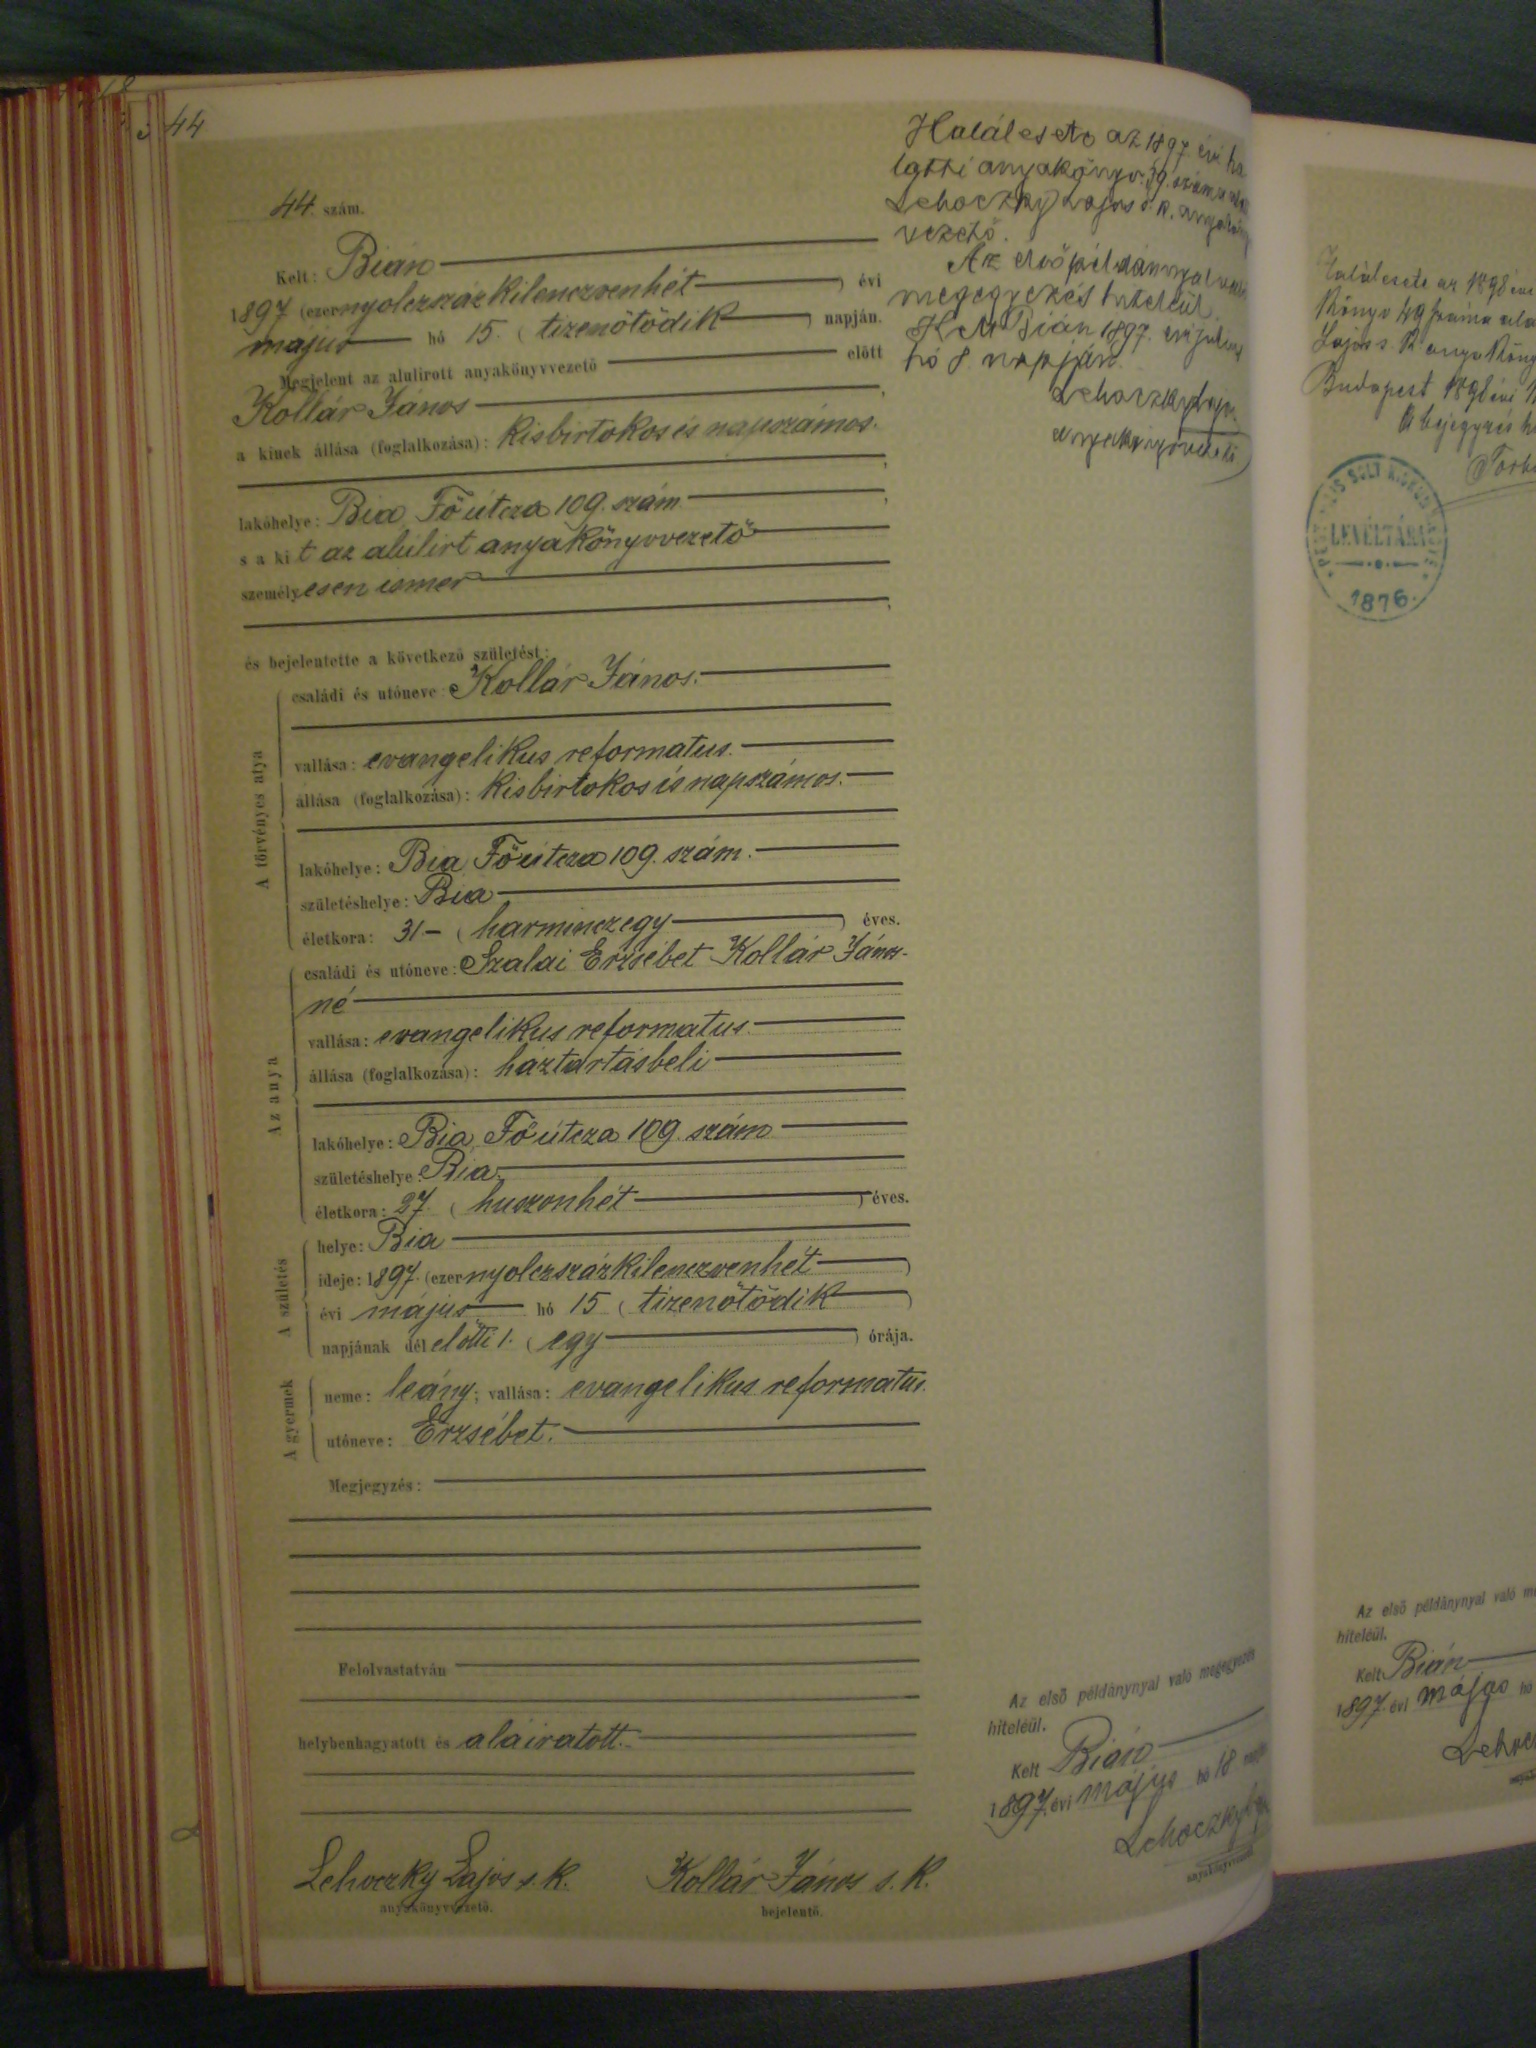 44
44. szám.
Kelt: Bián
1897 (ezernyolczszázkilenczvenhét) évi
május hó 15. (tizenötödik) napján.
Megjelent az alulirott anyakönyvvezető előtt
Kollár János,
a kinek állása (foglalkozása): kisbirtokos és napszámos.
lakóhelye: Bia, Fő útcza 109. szám,
s a kit az alúlirt anyakönyvvezető
személyesen ismer,
és bejelentette a következő születést:
A törvényes atya
családi és utóneve: Kollár János.
vallása: evangelikus reformatus.
állása (foglalkozása): kisbirtokos és napszámos.
lakóhelye: Bia, Fő útcza 109. szám.
születéshelye: Bia
életkora: 31 (harminczegy) éves.
Az anya
családi és utóneve: Szalai Erzsébet Kollár János-
né
vallása: evangelikus reformatus.
állása (foglalkozása): háztartásbeli
lakóhelye: Bia, Fő útcza 109. szám
születéshelye: Bia.
életkora: 27. (huszonhét) éves.
A születés
helye: Bia
ideje: 1897. (ezernyolczszázkilenczvenhét)
évi május hó 15 (tizenötödik)
napjának délelőtti 1. (egy) órája.
A gyermek
neme: leány; vallása: evangelikus reformatus.
utóneve: Erzsébet.
Megjegyzés:
Felolvastatván
helybenhagyatott és aláiratott.
Lehoczky Lajos s. k.
anyakönyvvezető.
Kollár János s. k.
bejelentő.
Halálesete az 1897. évi ha
lotti anyakönyv 39. száma alatt
Lehoczky Lajos s. k. anyakönyv
vezető.
Az első példánynyal való
megegyezés hiteléül.
Kelt Bián 1897. évi julius
hó 8. napján.
Lehoczky Lajos
anyakönyvvezető
Az első példánynyal való megegyezés
hiteléül.
Kelt Bián
1897. évi május hó 18
Lehoczky
anyakönyvvezető
Halálesete az 1898 évi
könyv 49 száma ala
Lajos s. k. anyaköny
Budapest 1898 évi
A bejegyzés
SOLT KISKUN
LEVÉLTÁRA
1876.
Az első példánynyal való
hiteléül.
Kelt Bián
1897. évi május hó
Lehoc